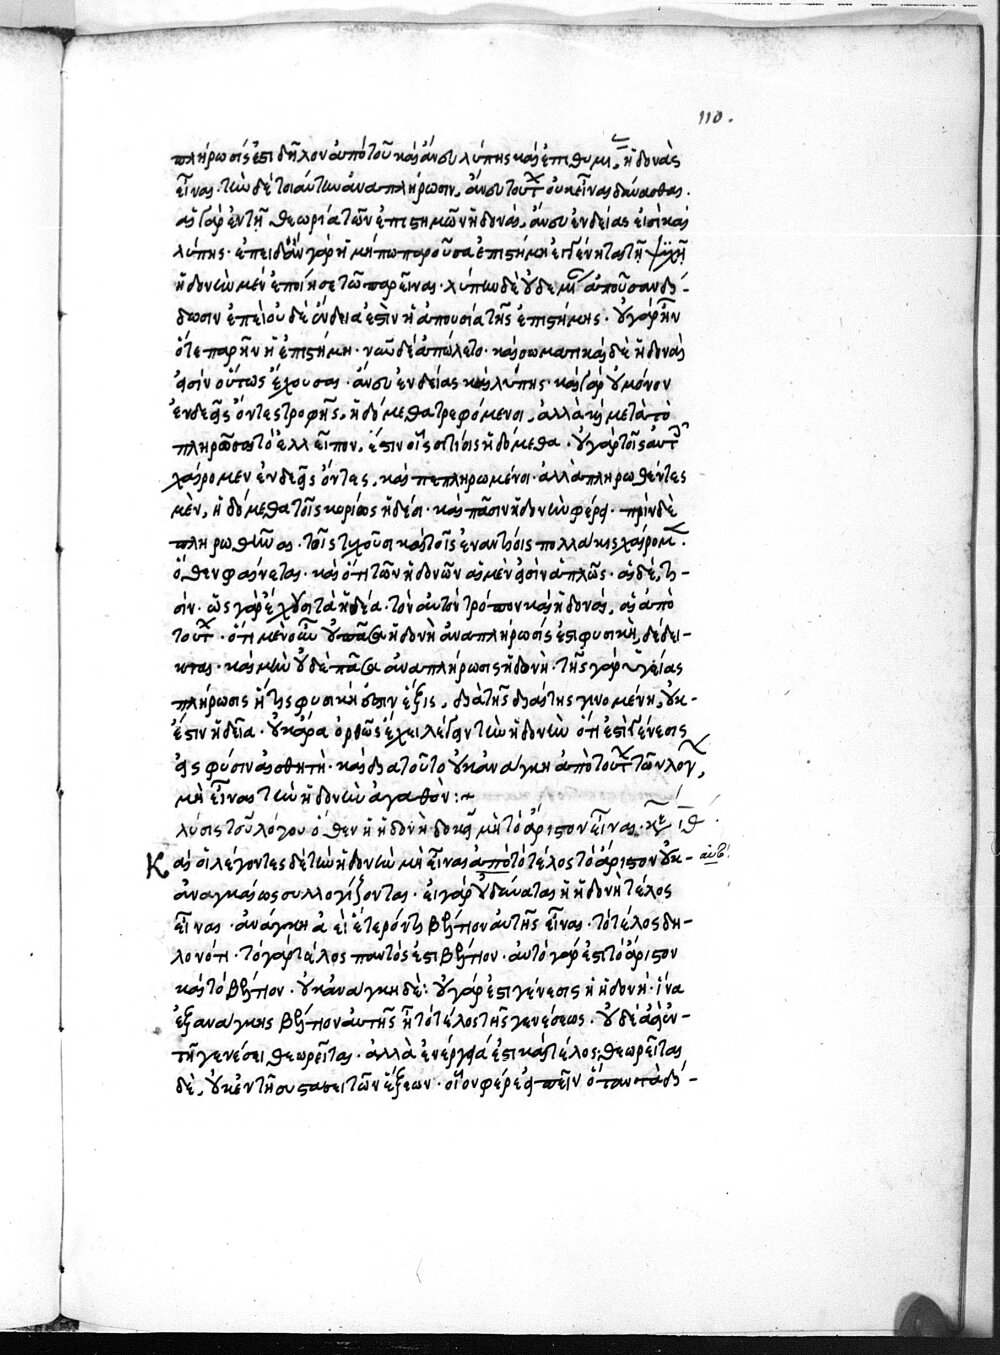 110.
πλήρωσίς ἐστι δῆλον ἀπὸ τοῦ καὶ ἄνευ λύπης καὶ ἐπιθυμί, ἡδονὰς
εἶναι. τὴν δὲ τοιαύτην ἀναπλήρωσιν, ἄνευ τούτ οὐκ εἶναι δύνασθαι.
αἱ γὰρ ἐν τῇ θεωρία τῶν ἐπιστημῶν ἡδοναὶ, ἄνευ ἐνδείας εἰσὶ καὶ
λύπης. ἐπειδὰν γὰρ ἡ μήπω παροῦσα ἐπιστήμη ἐγγένηται τῇ ψυχῇ
ἡδονὴν μὲν ἐποίησε τῶ παρεῖναι. λύπην δὲ οὐδεμί ἀποῦσαν δί-
δωσιν ἐπεὶ οὐδὲ ἔνδεια ἐστὶν ἡ ἀπουσία τῆς ἐπιστήμης. οὐ γὰρ ἦν
ὅτε παρῆν ἡ ἐπιστήμη. νῦν δὲ ἀπώλετο. καὶ σωματικαὶ δὲ ἡδοναὶ
εἰσὶν οὕτως ἔχουσαι. ἄνευ ἐνδείας καὶ λύπης. καὶ γὰρ οὐ μόνον
ἐνδεεῖς ὄντες τροφῆς, ἡδόμεθα τρεφόμενοι, ἀλλὰ καὶ μετὰ τὸ
πληρῶσαι τὸ ἐλλεῖπον, ἔστιν οἷς σιτίοις ἡδόμεθα. οὐ γὰρ τοῖς αὐτ
χαίρομεν ἐνδεεῖς ὄντες, καὶ πεπληρωμένοι. ἀλλὰ πληρωθέντες
μὲν, ἡδόμεθα τοῖς κυρίως ἡδέσι. καὶ πᾶσιν ἡδονὴν φέρει. πρὶν δὲ
πληρωθῆναι. τοῖς τυχοῦσι καὶ τοῖς ἐναντίοις πολλάκις χαίρομ.
ὅθεν φαίνεται. καὶ ὅτι τῶν ἡδονῶν αἱ μὲν εἰσὶν ἁπλῶς. αἱ δέ, τι-
σίν. ὡς γὰρ ἔχουσι τὰ ἡδέα. τὸν αὐτὸν τρόπον καὶ ἡδοναὶ, αἱ ἀπὸ
τούτ. ὅτι μὲν οὖν οὐ πᾶσα ἡδονὴ ἀναπλήρωσίς ἐστι φυσικὴ, δέδει-
κται. καὶ μὴν οὐδὲ πᾶσα ἀναπλήρωσις ἡδονή. τῆς γὰρ ὑγείας
πλήρωσις ἥτις φυσική ἐστιν ἕξις, διὰ τῆς διαίτης γινομένη, οὐκ-
ἔστιν ἡδεῖα. οὐκ ἄρα ὀρθῶς ἔχει λέγειν τὴν ἡδονὴν ὅτι ἐστὶ γένεσις
εἰς φύσιν αἰσθητή. καὶ διὰ τοῦτο οὐκ ἀνάγκη ἀπὸ τούτ τῶν λόγ,
μὴ εἶναι τὴν ἡδονὴν ἀγαθόν:~
λύσις τοῦ λόγου ὅθεν ἡ ἡδονὴ δοκεῖ μὴ τὸ ἄριστον εἶναι. κε ιθ.
Καὶ οἱ λέγοντες δὲ τὴν ἡδονὴν μὴ εἶναι ἀπὸ τὸ τέλος τὸ ἄριστον οὐκ-
ἀναγκαίως συλλογίζονται. εἰ γὰρ οὐ δύναται ἡ ἡδονὴ τέλος
εἶναι. ἀνάγκη ἀεὶ ἕτερόν τι βέλτιον αὐτῆς εἶναι. τὸ τέλος δη-
λονότι. τὸ γὰρ τέλος παντός ἐστι βέλτιον. αὐτὸ γάρ ἐστι τὸ ἄριστον
καὶ τὸ βέλτιον. οὐκ ἀνάγκη δέ: οὐ γάρ ἐστι γένεσις ἡ ἡδονή. ἵνα
ἐξ ἀνάγκης βέλτιον αὐτῆς ᾖ τὸ τέλος τῆς γενέσεως. οὐδὲ ἀεὶ ἐν-
τῇ γενέσει θεωρεῖται. ἀλλὰ ἐνέργειά ἐστι καὶ τέλος, θεωρεῖται
δὲ, οὐκ ἐν τῇ συστάσει τῶν ἕξεων. οἷον φέρε εἰπεῖν ὅταν παιδί-